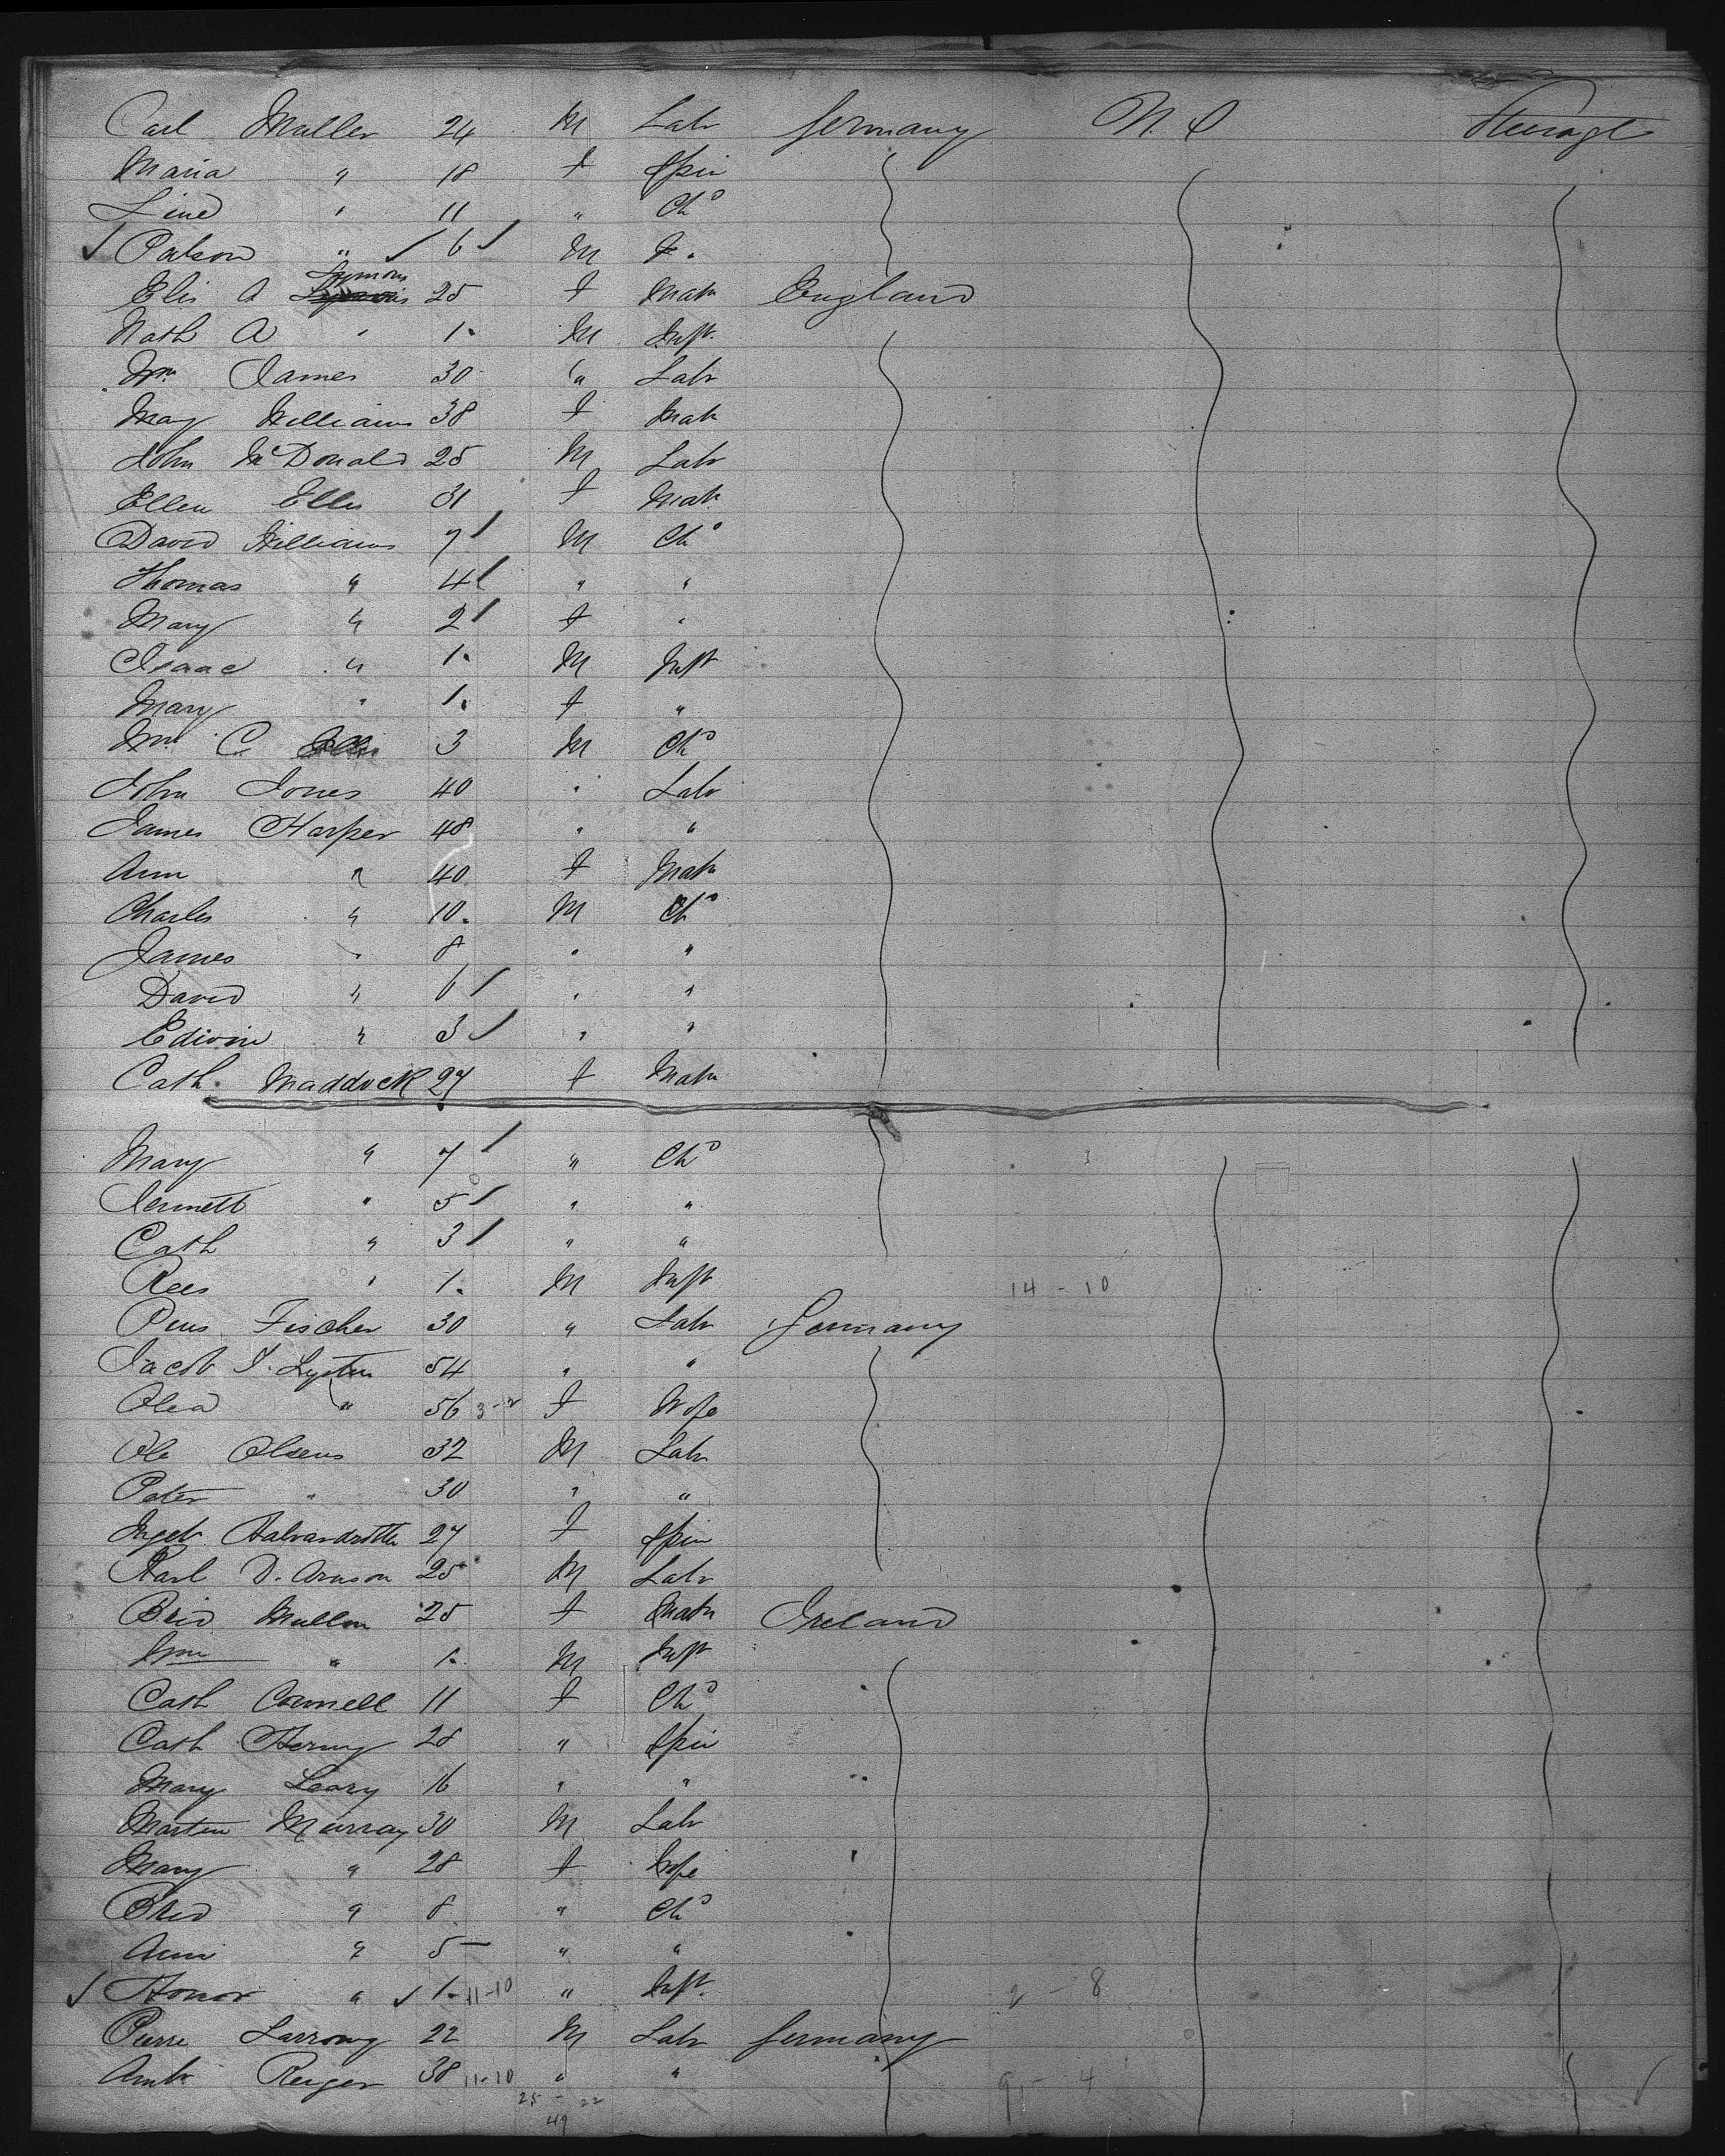 Carl Muller 24 M Labr Germany U.S Steerage
Maria " 18 f Spin
Line " 11 " Chd
" 6 M
Elis A Symons 25 f Matr England
Nath A " 1. M Inft
Wm James 30 " Labr
Mary Williams 38 f Matr
John McDonald 25 M Labr
Ellen Ellis 31 f Matr
David Williams 7 M Chd
Thomas " 4 " "
Mary " 2 f "
Isaac " 1. M Inft
Mary " 1. f "
Wm C 3 M Chd
John Jones 40 " Labr
James Harper 48 " "
Ann " 40 f Matr
Charles " 10. M Chd
James " 8 " "
David " 6 " "
Edwin " 3 " "
Cath. Maddock 27 f Matr
Mary " 7 " Chd
Jennett " 5 " "
Cath " 3 " "
Rees " 1. M Inft 14 - 10
Pius Fischer 30 " Labr Germany
Jacob 54 " "
Olea " 56 f Wife
Ole Olsens 32 M Labr
Peter " 30 " "
27 f Spin
Karl D. Arnson 25 M Labr
Brid Mullen 25 f Matr Ireland
Wm " 1. M Inft
Cath Connell 11 f Chd
Cath 28 " Spin
Mary Leary 16 " "
Martin Murray 30 M Labr
Mary " 28 f Wife
Brid " 8 " Chd
Ann " 5 " "
Honor " 1. 11-10 " Inft 2 - 8
Pierre 22 M Labr Germany
Reiger 38 11-10 " " 9 - 4
25 - 22
49